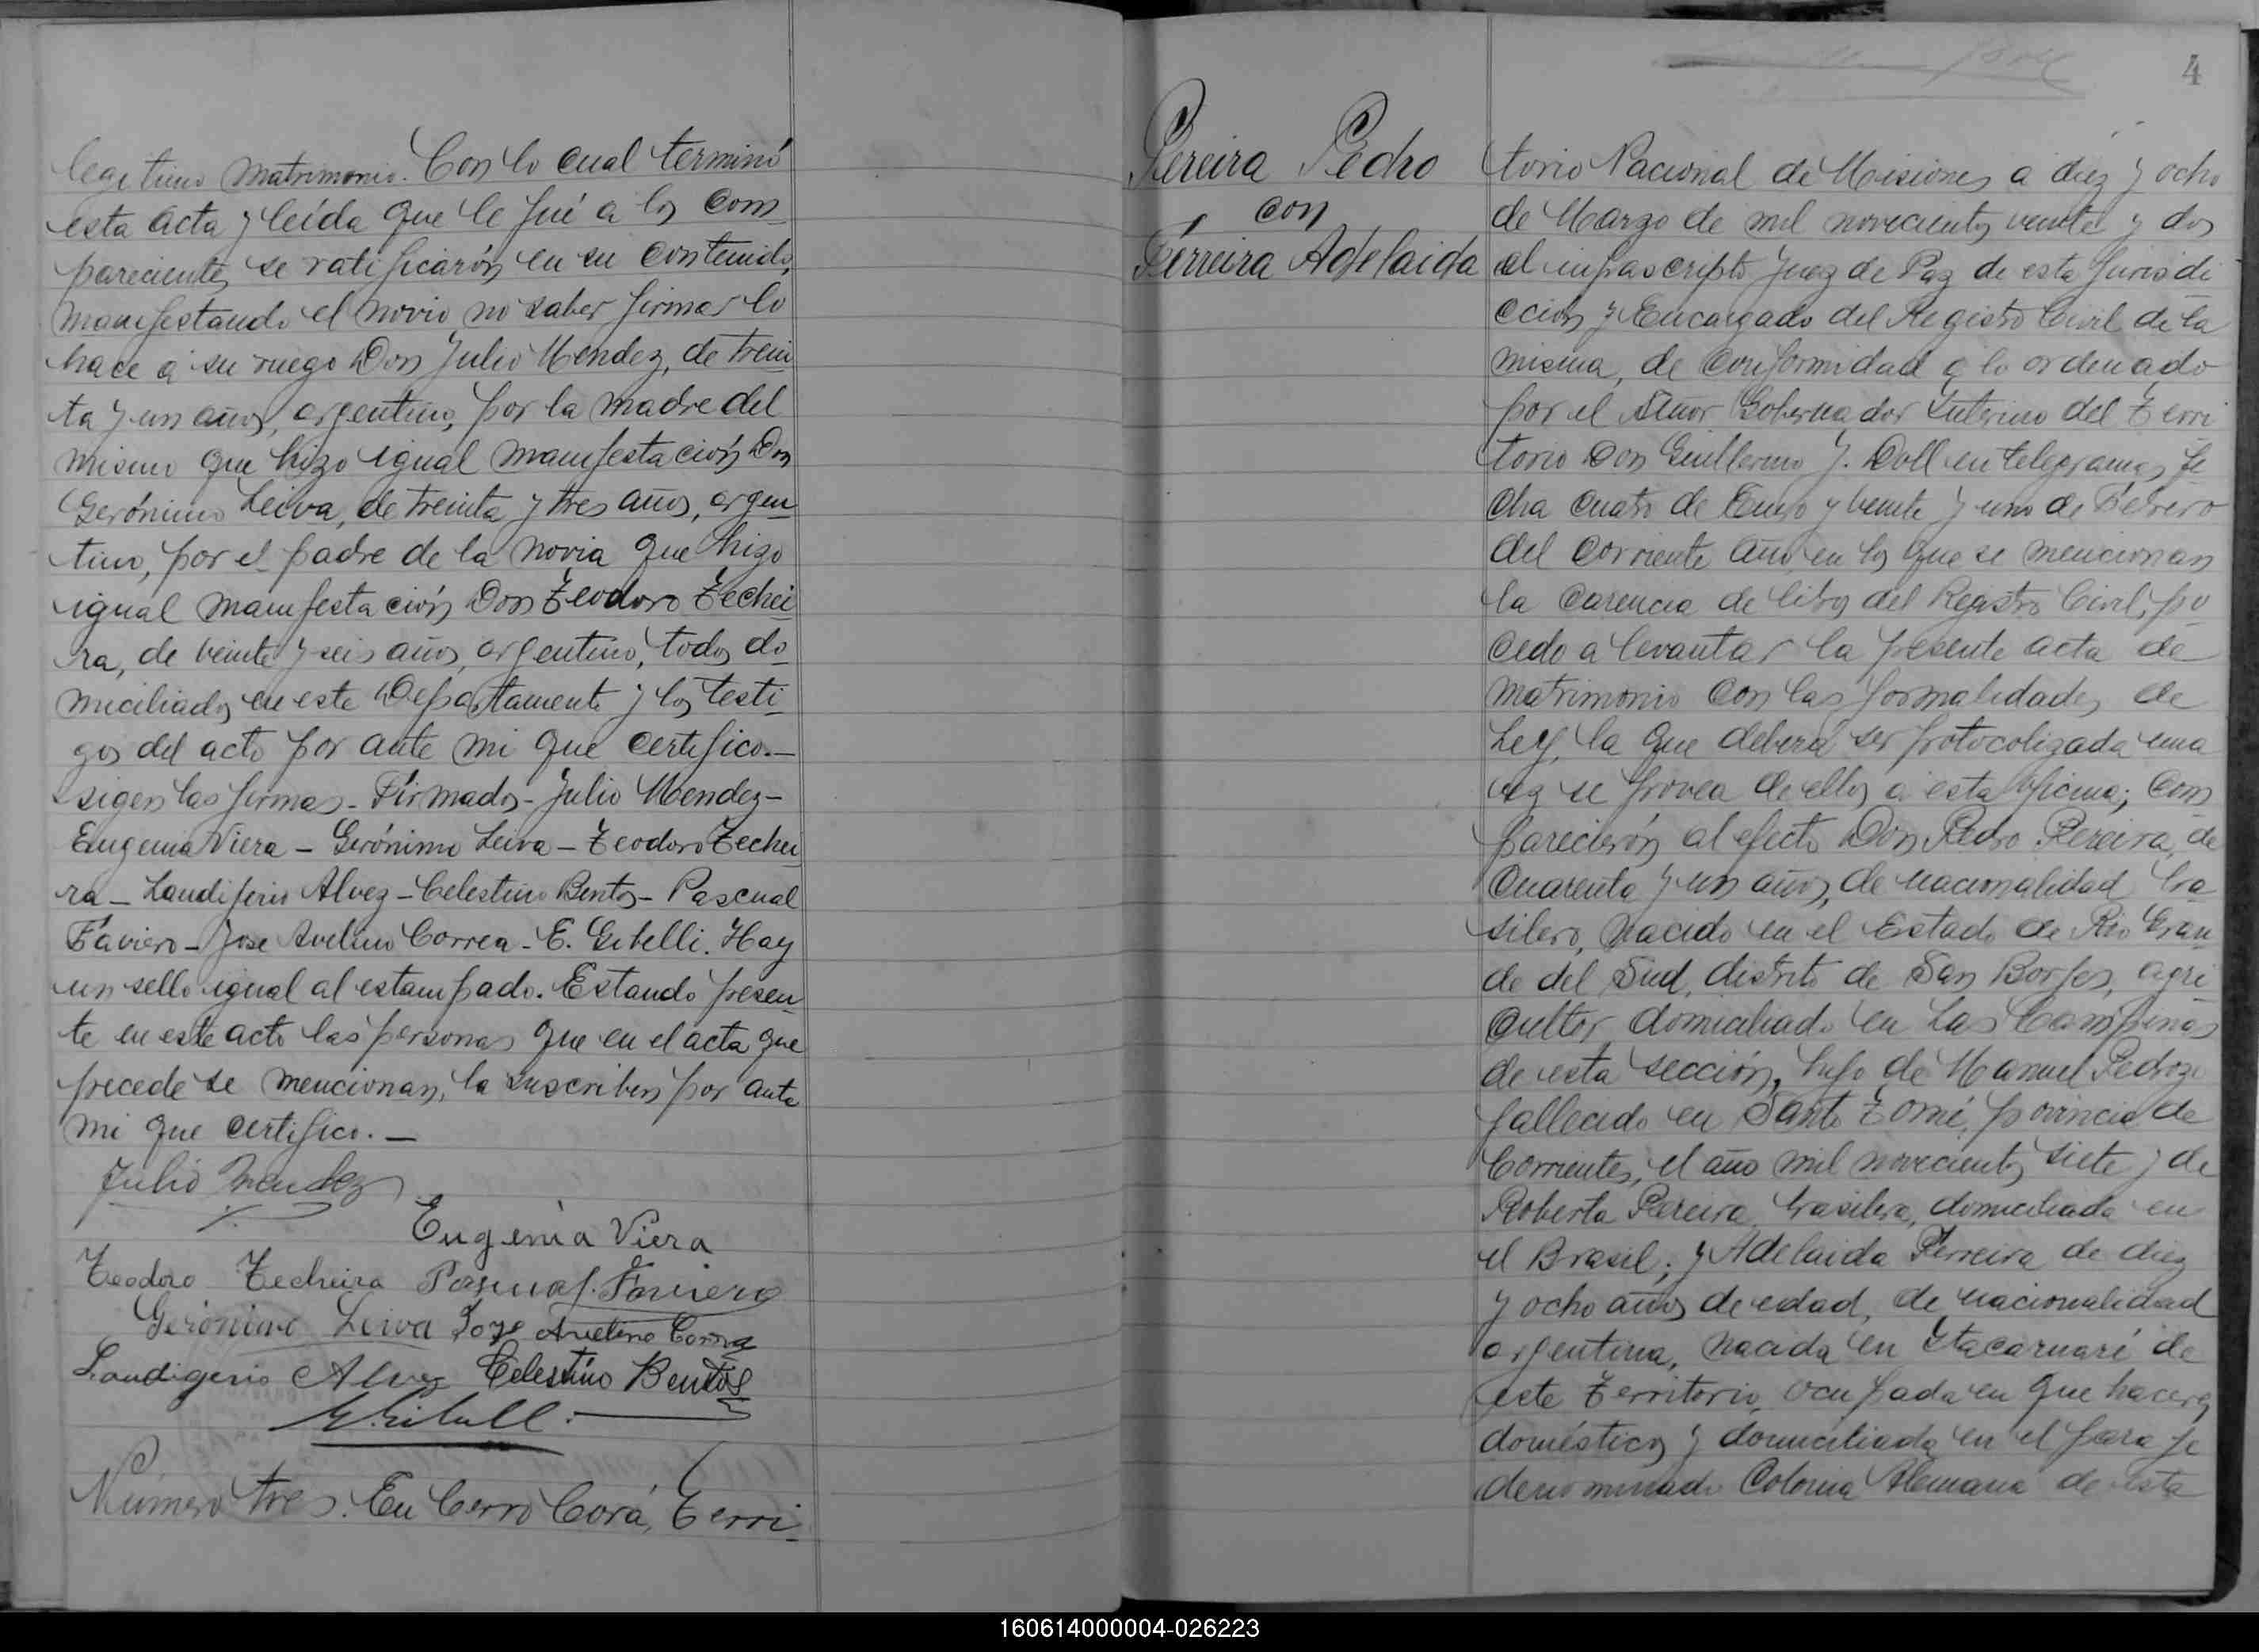 legitimo matrimonio. Con lo cual terminó
esta acta y leída que le fué a los com
parecientes se ratificarón en su contenido,
manifestando el novio no saber firmar lo
hace a su ruego Don Julio Mendez, de trein
ta y un años, argentino, por la madre del
mismo que hizo igual manifestación Don
Gerónimo Leiva, de treinta y tres años, argen
tino, por el padre de la novia que hizo
igual manifestación Don Teodoro Techei
ra, de veinte y seis años, argentino, todos do
miciliados en este Departamento y los testi
gos del acto por ante mi que certifico.—
sigen las firmas - Firmados - Julio Mendez -
Eugenia Viera - Gerónimo Leiva - Teodoro Techei
ra - Laudiferio Alvez - Celestino Bentos - Pascual
Faviero - Jose Avelino Correa - E. Gibelli. Hay
un sello igual al estampado. Estando presen
te en este acto las personas que en el acta que
precede se mencionan, la suscriben por ante
mi que certifico. —
Julio Mendez
Eugenia Viera
Teodoro Techeira Pascual Faviero
Gerónimo Leiva Jose Avelino Correa
Laudigerio Alvez Celestino Bentos
Número tres. En Cerro Corá, Terri
4
Pereira Pedro
con
Ferreira Adelaida
torio Nacional de Misiones a diez y ocho
de Marzo de mil novecientos veinte y dos
el infrascripto Juez de Paz de esta Jurisdi
cción y Encargado del Registro Civil de la
misma, de conformidad a lo ordenado
por el Señor Gobernador Interino del Terri
torio Don Guillermo J. Doll en telegramas fe
cha cuatro de Enero y veinte y uno de Febrero
del corriente año, en los que se mencionan
la carencia de libros del Registro Civil, pro
cedo a levantar la presente acta de
matrimonio con las formalidades de
Ley, la que deberá ser protocolizada una
vez se provea de ellos a esta oficina; com
parecierón al efecto Don Pedro Pereira, de
cuarenta y un años, de nacionalidad bra
silero, nacido en el Estado de Rio Gran
de del Sud, distrito de San Borjes, agri
cultor domiciliado en Las Campinas
de esta sección, hijo de Manuel Pedrozo
fallecido en Santo Tomé, provincia de
Corrientes, el año mil novecientos siete y de
Roberta Pereira, brasilera, domiciliada en
el Brasil; y Adelaida Ferreira de diez
y ocho años de edad, de nacionalidad
argentina, nacida en Itacaruaré de
este Territorio, ocupada en que haceres
domésticos y domiciliada en el paraje
denominado Colonia Alemana de esta
160614000004-026223